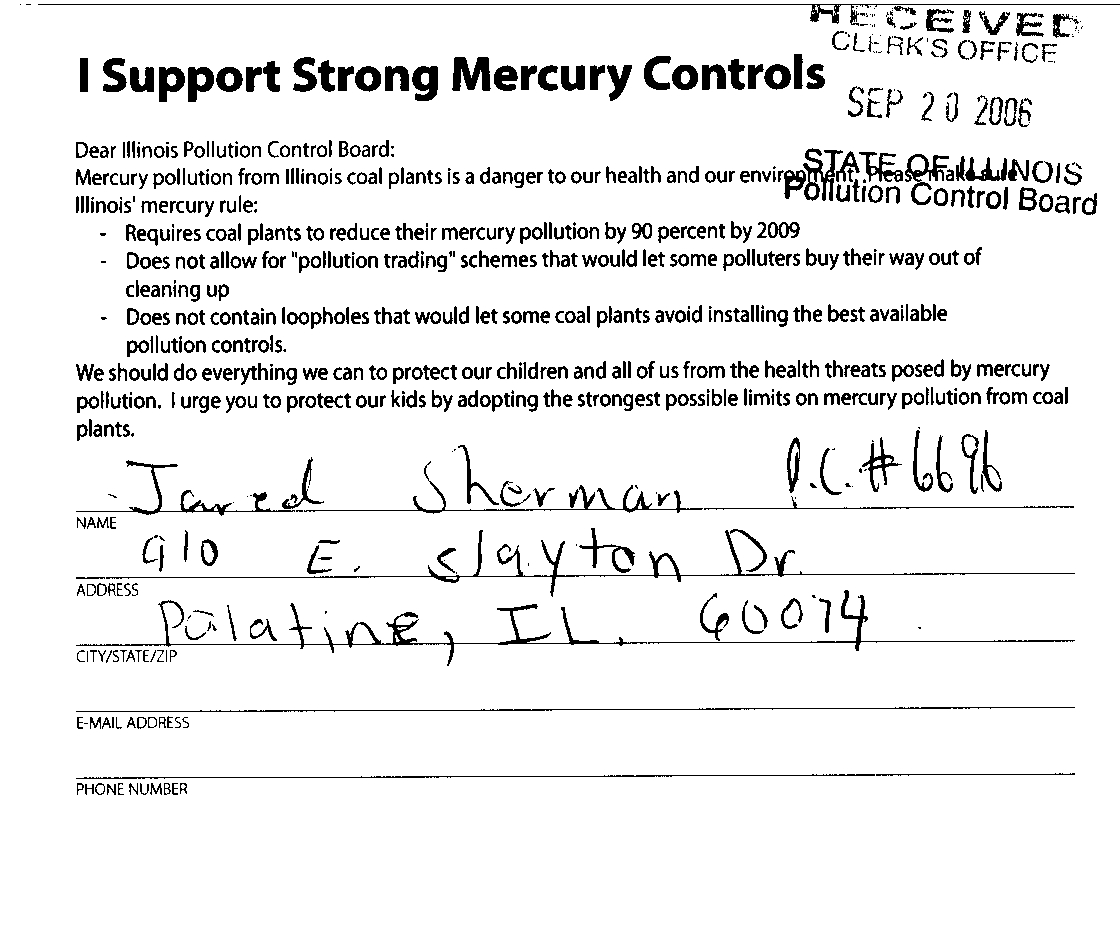 RECEIVED
CLERK'S OFFICE
I Support Strong Mercury Controls
SEP 20 2006
STATE OF ILLINOIS
Pollution Control Board
Dear Illinois Pollution Control Board:
Mercury pollution from Illinois coal plants is a danger to our health and our environment. Please make sure
Illinois' mercury rule:
- Requires coal plants to reduce their mercury pollution by 90 percent by 2009
- Does not allow for "pollution trading" schemes that would let some polluters buy their way out of
cleaning up
- Does not contain loopholes that would let some coal plants avoid installing the best available
pollution controls.
We should do everything we can to protect our children and all of us from the health threats posed by mercury
pollution. I urge you to protect our kids by adopting the strongest possible limits on mercury pollution from coal
plants.
Jared Sherman P.C.#6696
NAME
910 E. Slayton Dr.
ADDRESS
Palatine, IL. 60074
CITY/STATE/ZIP
E-MAIL ADDRESS
PHONE NUMBER